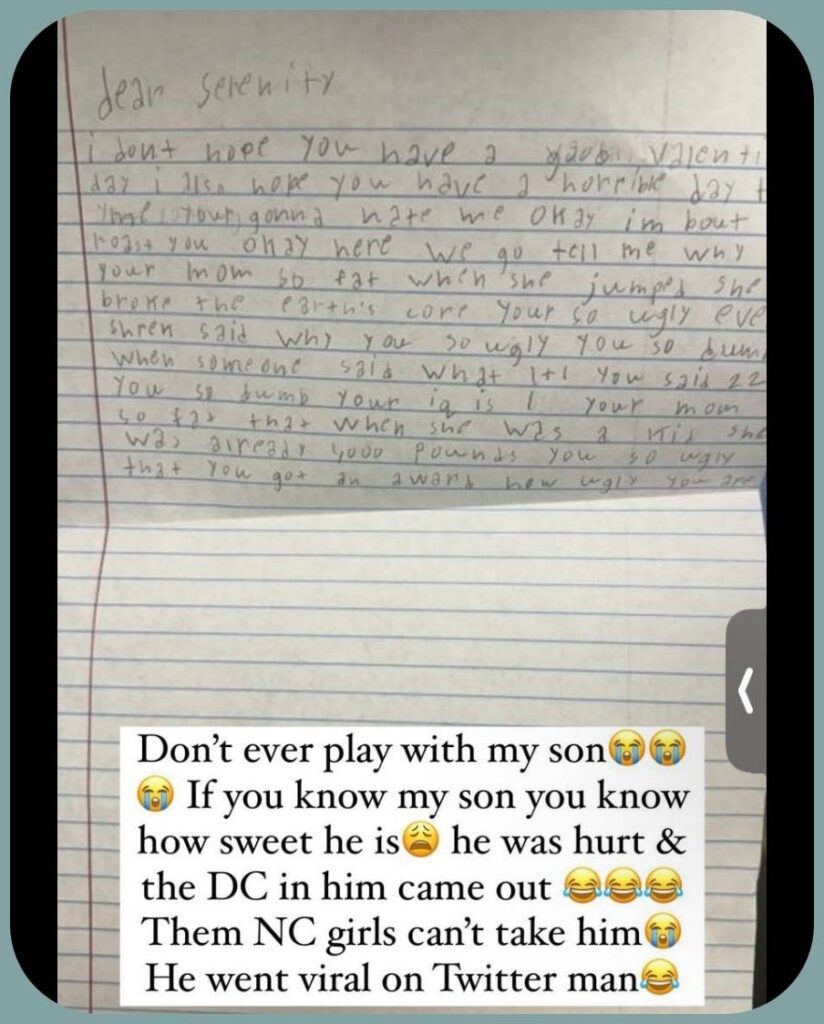 dear serenity
i dont hope you have a Valenti
day i also hope you have a horrible day
your gonna hate me okay im bout
roast you okay here we go tell me why
your mom so fat when she jumped she
broke the earth's core your so ugly eve
shrek said why you so ugly you so dum
when someone said what 1+1 you said 22
you so dumb your iq is 1 your mom
so fat that when she was a kid she
was already 1,000 pounds you so ugly
that you got an award how ugly you are
Don't ever play with my son😭😭
😭 If you know my son you know
how sweet he is😩 he was hurt &
the DC in him came out 😂😂😂
Them NC girls can't take him😭
He went viral on Twitter man😂